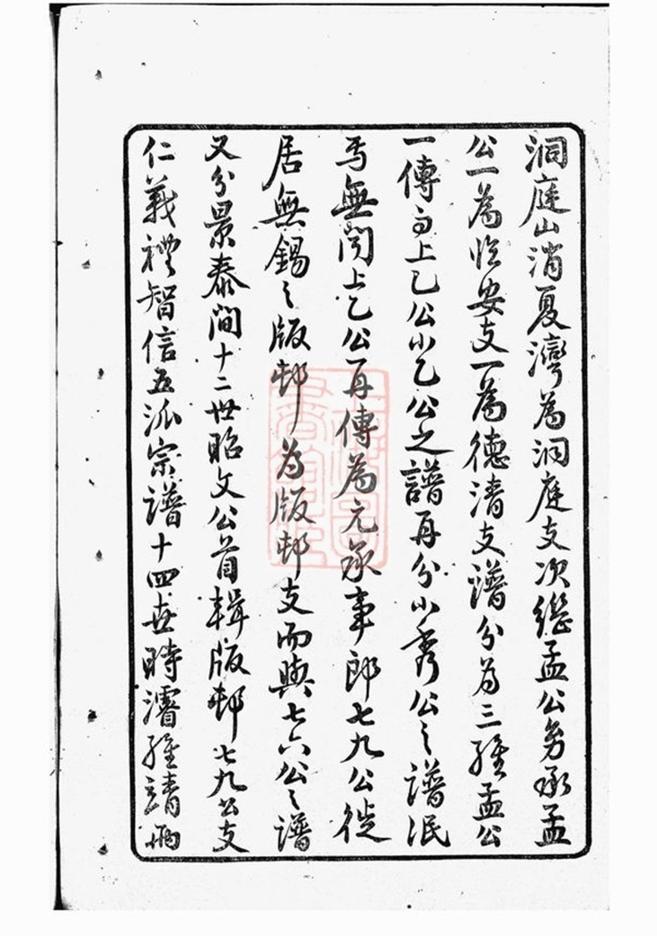 洞庭山消夏灣為洞庭支次繼孟公勇承孟
公一為臨安支一為德清支譜分為三經孟公
一傳而上乙公小乙公之譜再分小秀公之譜泯
焉無聞上乙公再傳為元承事郎七九公徙
居無錫之版邨為版邨支而與七六公之譜
又分景泰間十二世昭文公首輯版邨七九公支
仁義禮智信五派宗譜十四世時濬經請兩